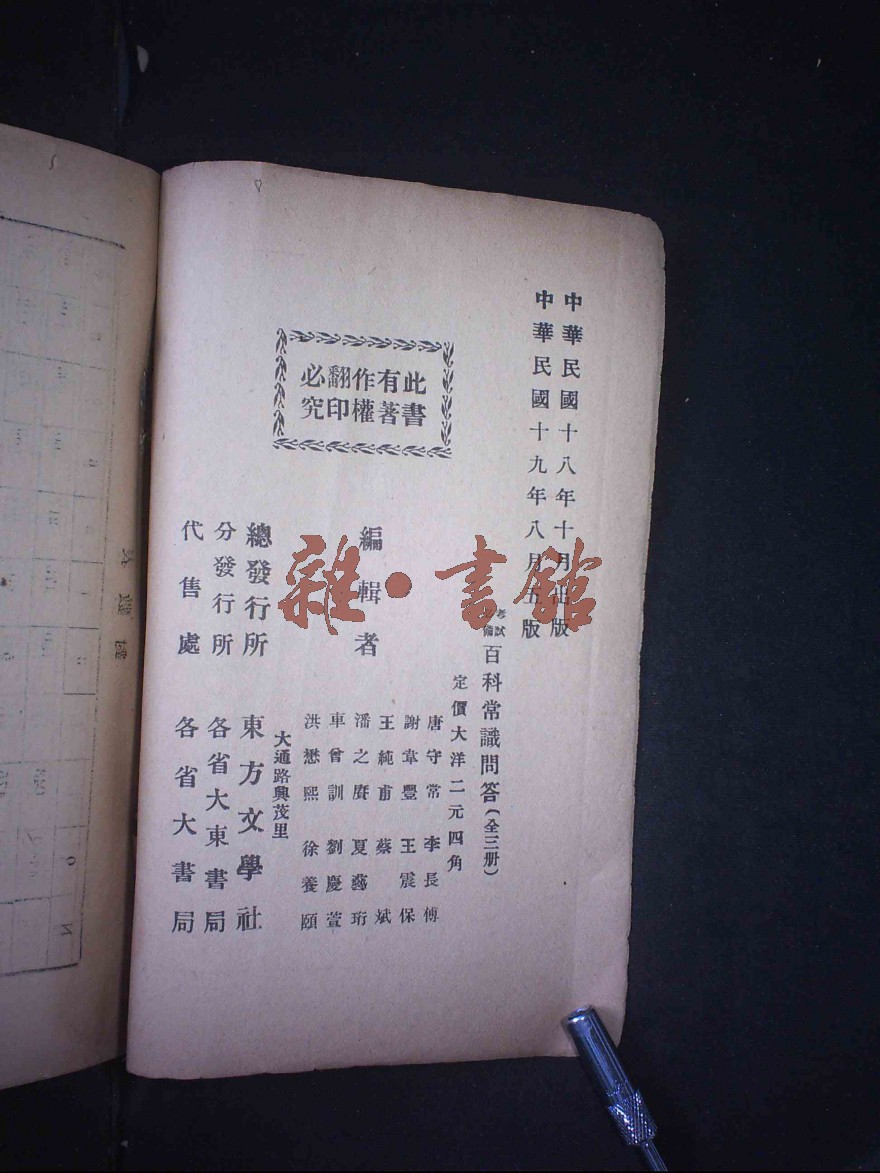 中華民國十八年十月正版
中華民國十九年八月五版
考試
百科常識問答(全三册)
定價大洋二元四角
此書
有著
作權
翻印
必究
編輯者
唐守常 李長傅
謝韋豐 王震保
王純甫 蔡斌
潘之賡 夏藝珩
車曾訓 劉慶萱
洪懋熙 徐養頤
大通路興茂里
總發行所 東方文學社
分發行所 各省大東書局
代售處 各省大書局
雜·書館